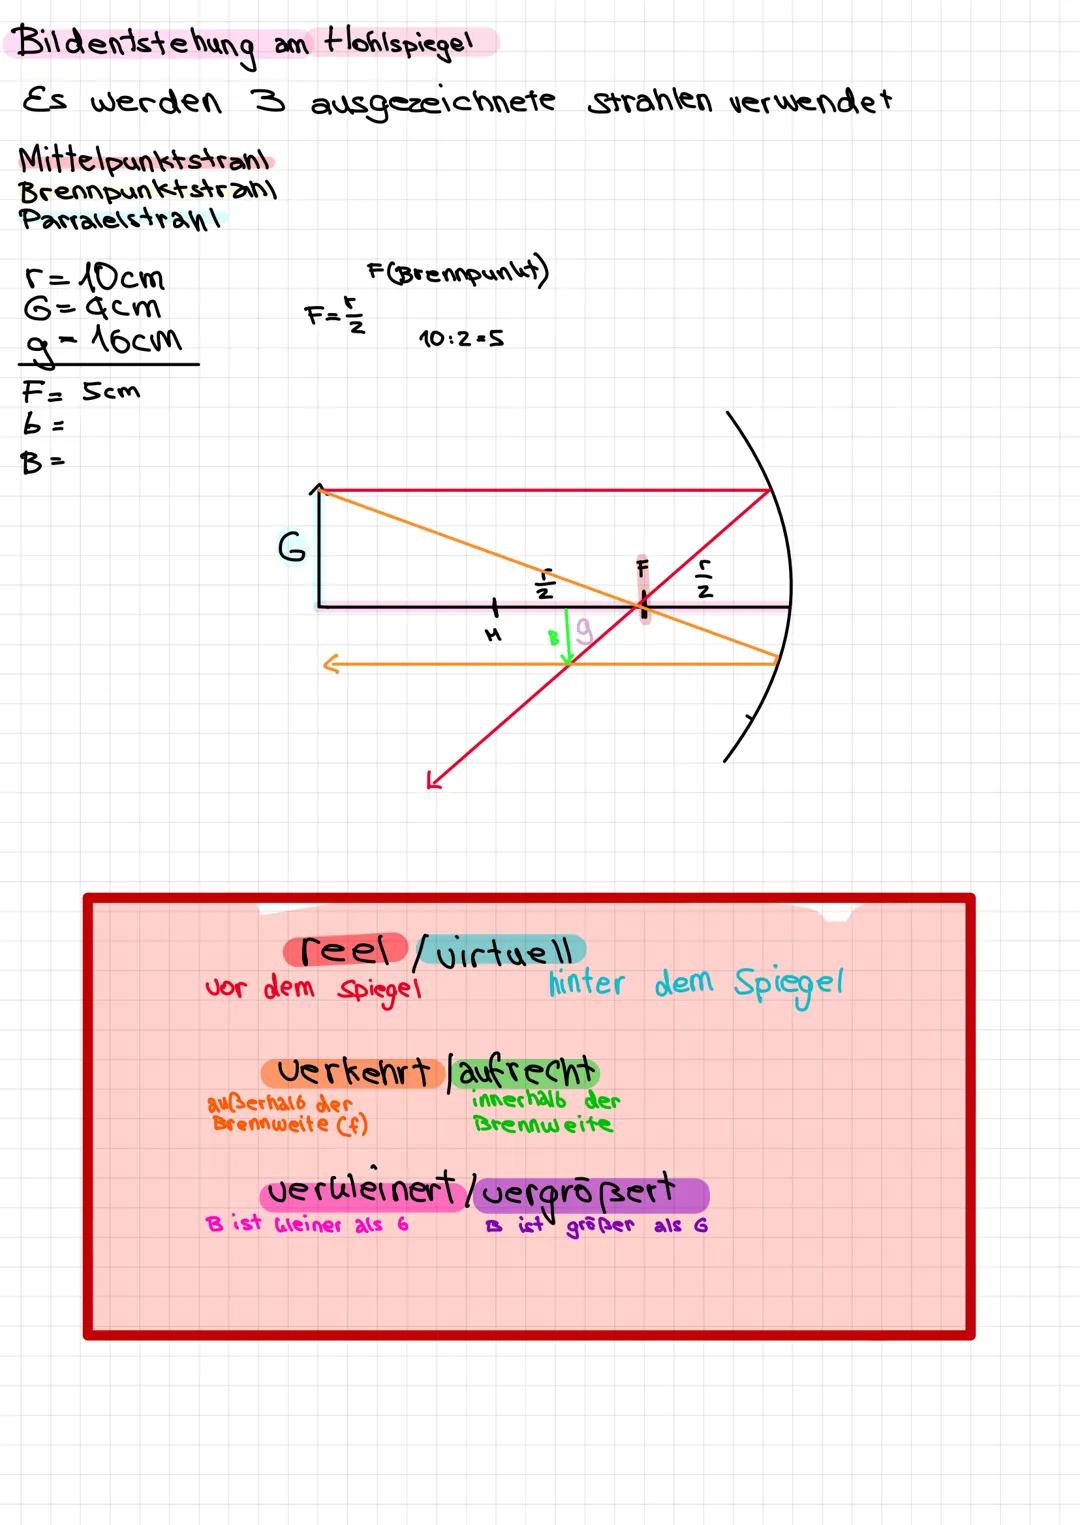 Bildentstehung am Hohlspiegel
Es werden 3 ausgezeichnete Strahlen verwendet
Mittelpunktstrahl
Brennpunktstrahl
Parralelstrahl
r = 10cm
G = 4cm
g = 16cm
F = 5cm
b =
B =
F (Brennpunkt)
F = r/2
10:2=5
G
r/2
F
r/2
M
B
g
reel / virtuell
vor dem Spiegel
hinter dem Spiegel
verkehrt / aufrecht
außerhalb der
Brennweite (f)
innerhalb der
Brennweite
verkleinert / vergrößert
B ist kleiner als G
B ist größer als G